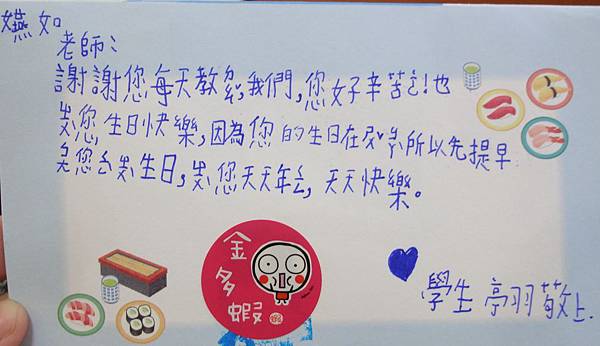 嬿如
老師:
謝謝您每天教我們,您好辛苦!也
您生日快樂,因為您的生日在所以先提早
您生日,您天天年,天天快樂。
金多蝦
學生 亭羽敬上.